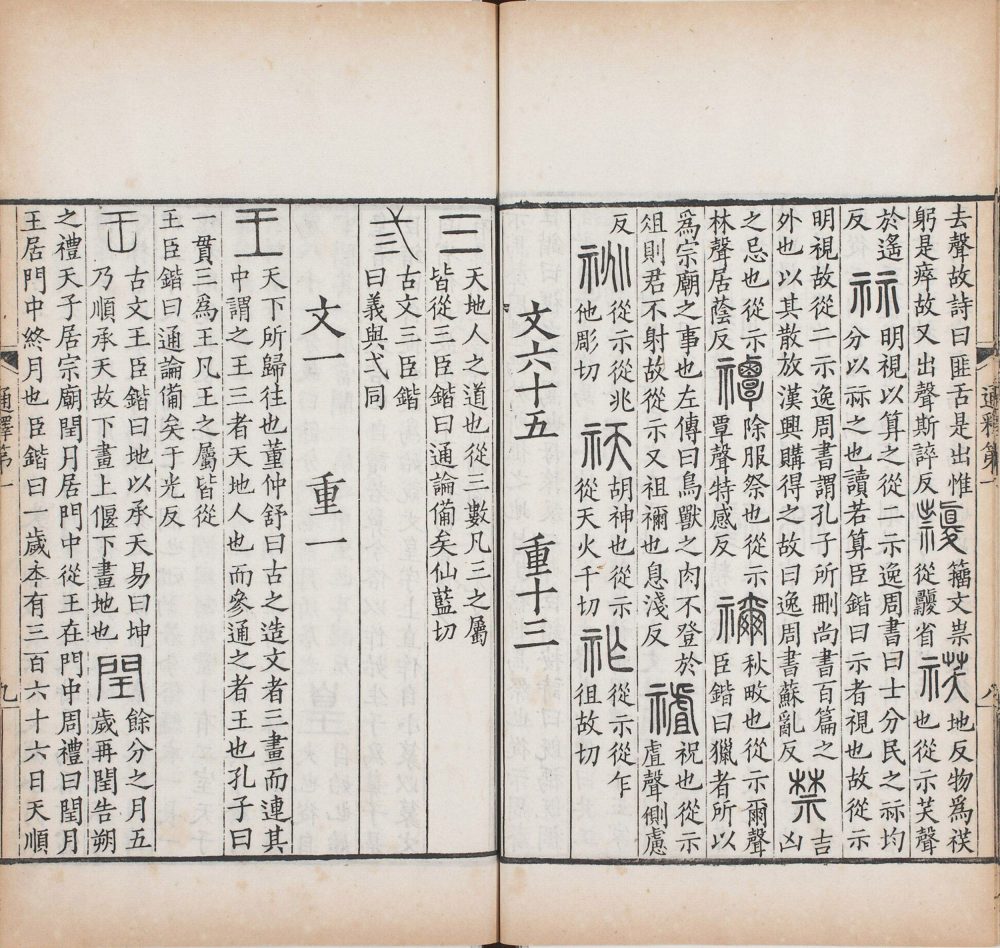 去聲故詩曰匪舌是出惟躬是瘁故又出聲斯誶反 𥜿 籕文祟從省 祅 地反物為祅也從示芺聲
於遙反 祘 明視以算之從二示逸周書曰士分民之祘均分以祘之也讀若算臣鍇曰示者視也故從示
明視故從二示逸周書謂孔子所刪尚書百篇之外也以其散放漢興購得之故曰逸周書蘇亂反 禁 吉凶
之忌也從示林聲居蔭反 禫 除服祭也從示覃聲特感反 禰 秋畋也從示爾聲臣鍇曰獵者所以
為宗廟之事也左傳曰鳥獸之肉不登於俎則君不射故從示又祖禰也息淺反 𥛜 祝也從示虘聲側慮
反 祧 從示從兆他彫切 祆 胡神也從示從天火千切 祚 從示從乍徂故切
文六十五 重十三
三 天地人之道也從三數凡三之屬皆從三臣鍇曰通論備矣仙藍切
弎 古文三臣鍇曰義與弌同
文一 重一
王 天下所歸往也董仲舒曰古之造文者三畫而連其中謂之王三者天地人也而參通之者王也孔子曰
一貫三爲王凡王之屬皆從王臣鍇曰通論備矣于光反
𠙻 古文王臣鍇曰地以承天易曰坤乃順承天故下畫上偃下畫地也 閏 餘分之月五歲再閏告朔
之禮天子居宗廟閏月居門中從王在門中周禮曰閏月王居門中終月也臣鍇曰一歲本有三百六十六日天順
通釋第一
九